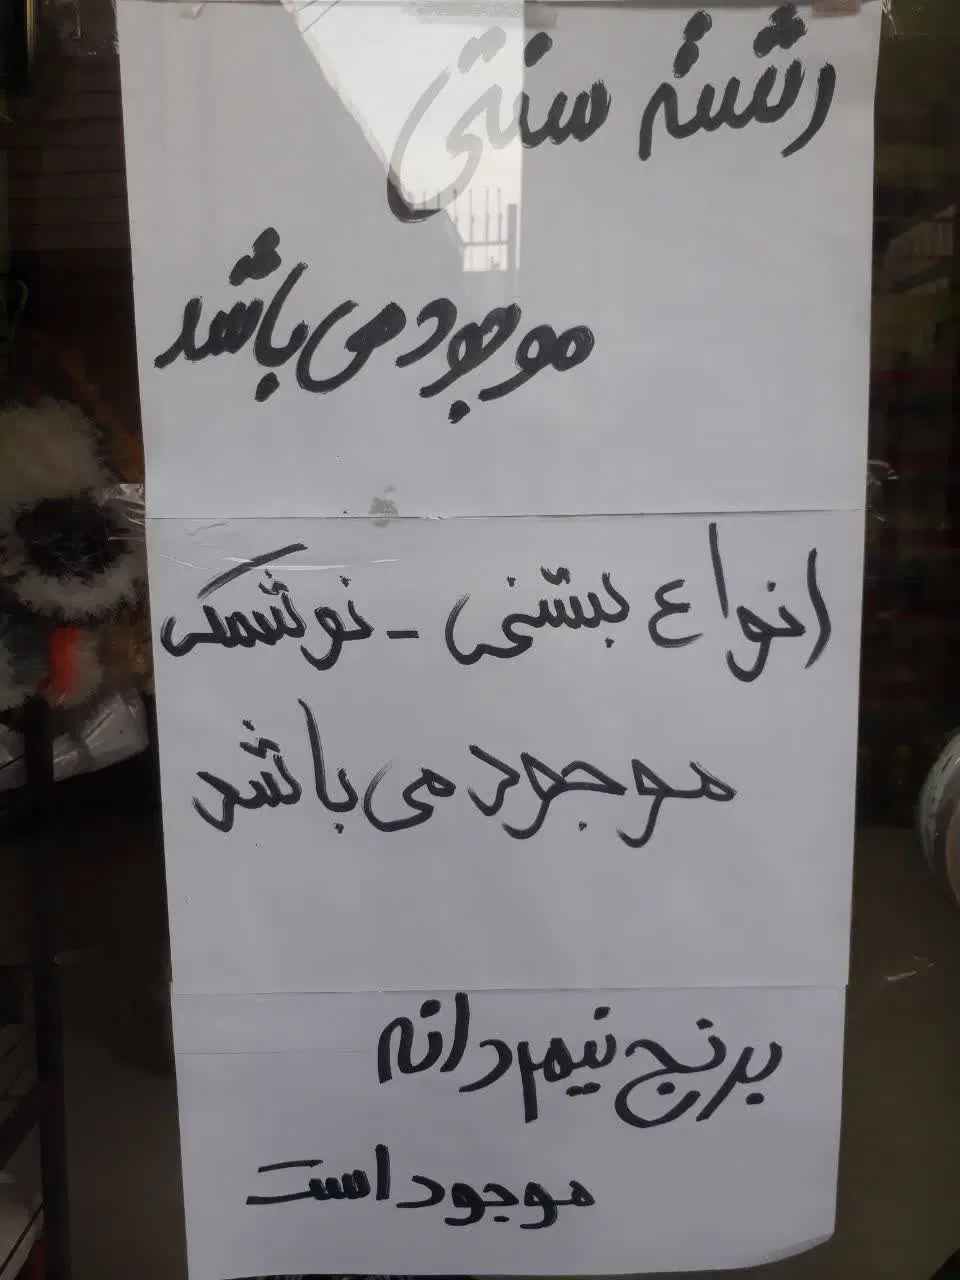 رشته سنتی
موجود می باشد
انواع بستنی - نوشمک
موجود می باشد
برنج نیم دانه
موجود است